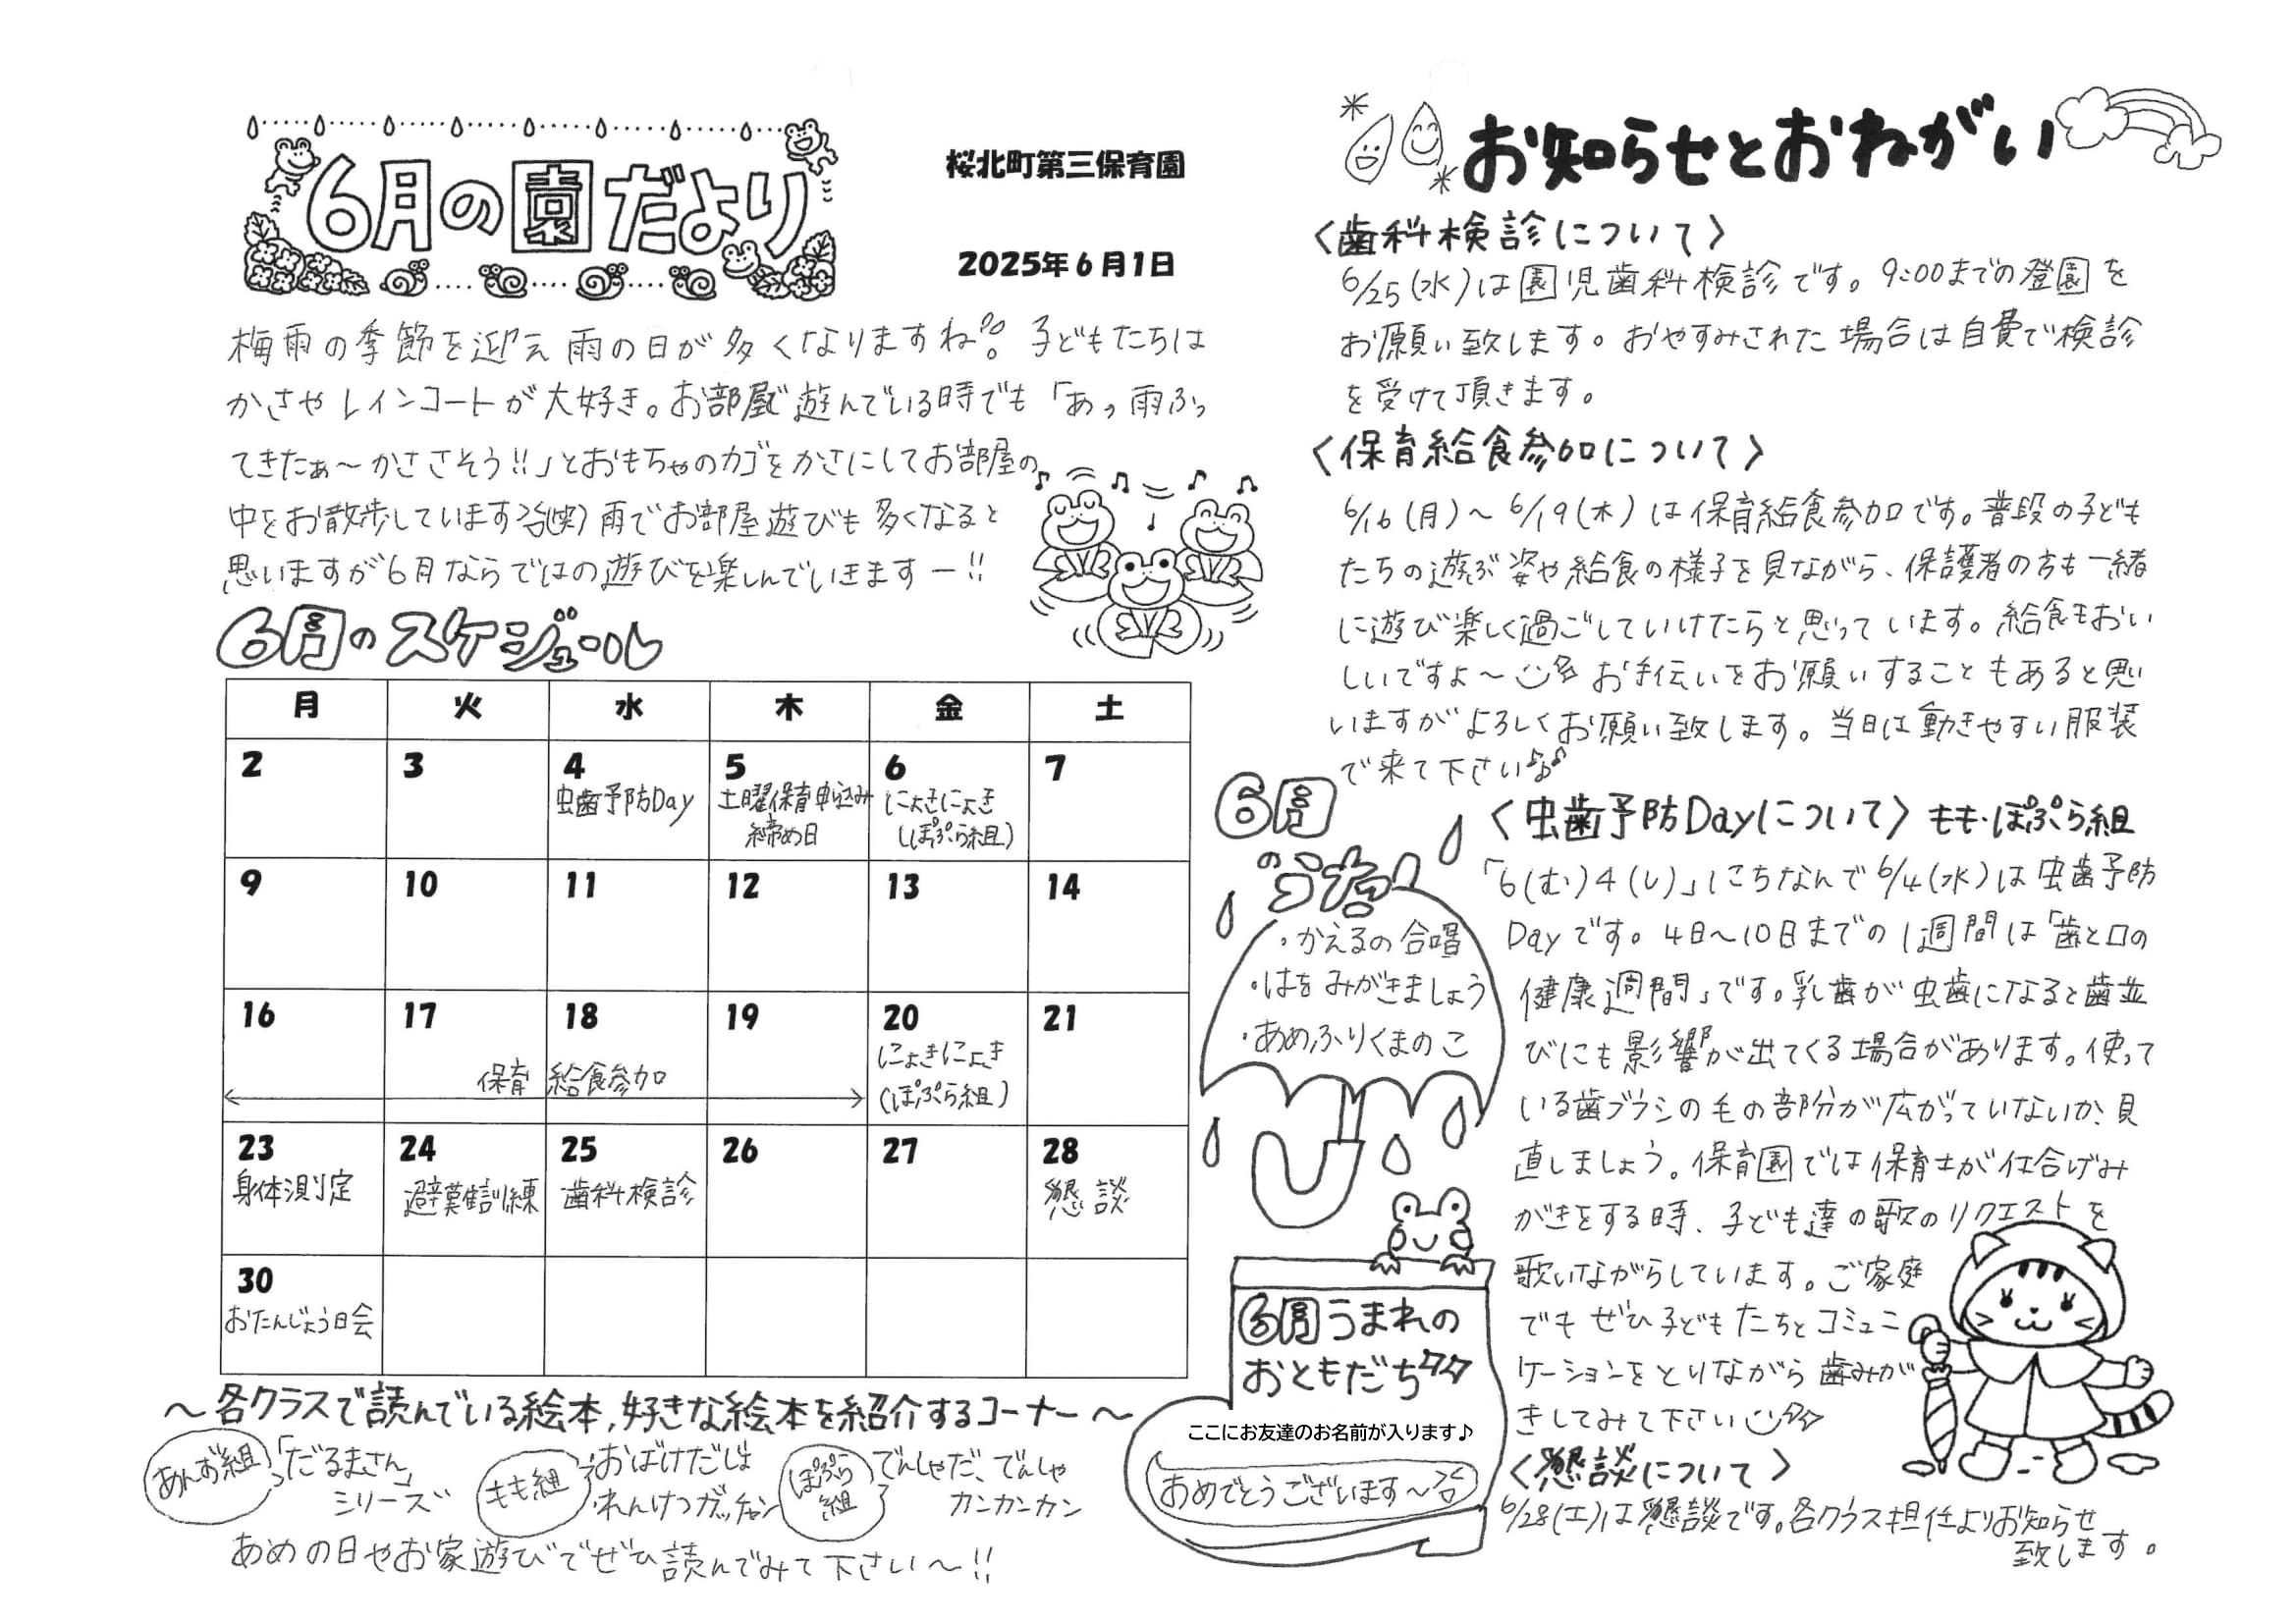 6月の園だより
桜北町第三保育園
2025年6月1日
梅雨の季節を迎え雨の日が多くなりますね。子どもたちは
かさやレインコートが大好き。お部屋で遊んでいる時でも「あっ雨ふっ
てきたぁ〜かささそう!!」とおもちゃのカゴをかさにしてお部屋の
中をお散歩しています(笑)雨でお部屋遊びも多くなると
思いますが6月ならではの遊びを楽しんでいきますー!!
6月のスケジュール
月 火 水 木 金 土
2 3 4 5 6 7
虫歯予防Day 土曜保育申込み にょきにょき
締め日 (ぽぷら組)
9 10 11 12 13 14
16 17 18 19 20 21
保育給食参加 にょきにょき
(ぽぷら組)
23 24 25 26 27 28
身体測定 避難訓練 歯科検診 懇談
30
おたんじょう日会
〜各クラスで読んでいる絵本,好きな絵本を紹介するコーナー〜
あんず組 「だるまさん」
シリーズ
もも組 ・おばけだじょ
・れんけつガッチャン
ぽぷら組 でんしゃだ、でんしゃ
カンカンカン
あめの日やお家遊びでぜひ読んでみて下さい〜!!
お知らせとおねがい
〈歯科検診について〉
6/25(水)は園児歯科検診です。9:00までの登園を
お願い致します。おやすみされた場合は自費で検診
を受けて頂きます。
〈保育給食参加について〉
6/16(月)〜6/19(木)は保育給食参加です。普段の子ども
たちの遊ぶ姿や給食の様子を見ながら、保護者の方も一緒
に遊び楽しく過ごしていけたらと思っています。給食もおい
しいですよ〜 お手伝いをお願いすることもあると思
いますがよろしくお願い致します。当日は動きやすい服装
で来て下さい♪♪
6月
のうた
・かえるの合唱
・はをみがきましょう
・あめふりくまのこ
〈虫歯予防Dayについて〉もも・ぽぷら組
「6(む)4(し)」にちなんで6/4(水)は虫歯予防
Dayです。4日〜10日までの1週間は「歯と口の
健康週間」です。乳歯が虫歯になると歯並
びにも影響が出てくる場合があります。使って
いる歯ブラシの毛の部分が広がっていないか、見
直しましょう。保育園では保育士が仕合げみ
がきをする時、子ども達の歌のリクエストを
歌いながらしています。ご家庭
でもぜひ子どもたちとコミュニ
ケーションをとりながら歯みが
きしてみて下さい
6月うまれの
おともだち
ここにお友達のお名前が入ります♪
おめでとうございます〜
〈懇談について〉
6/28(土)は懇談です。各クラス担任よりお知らせ
致します。